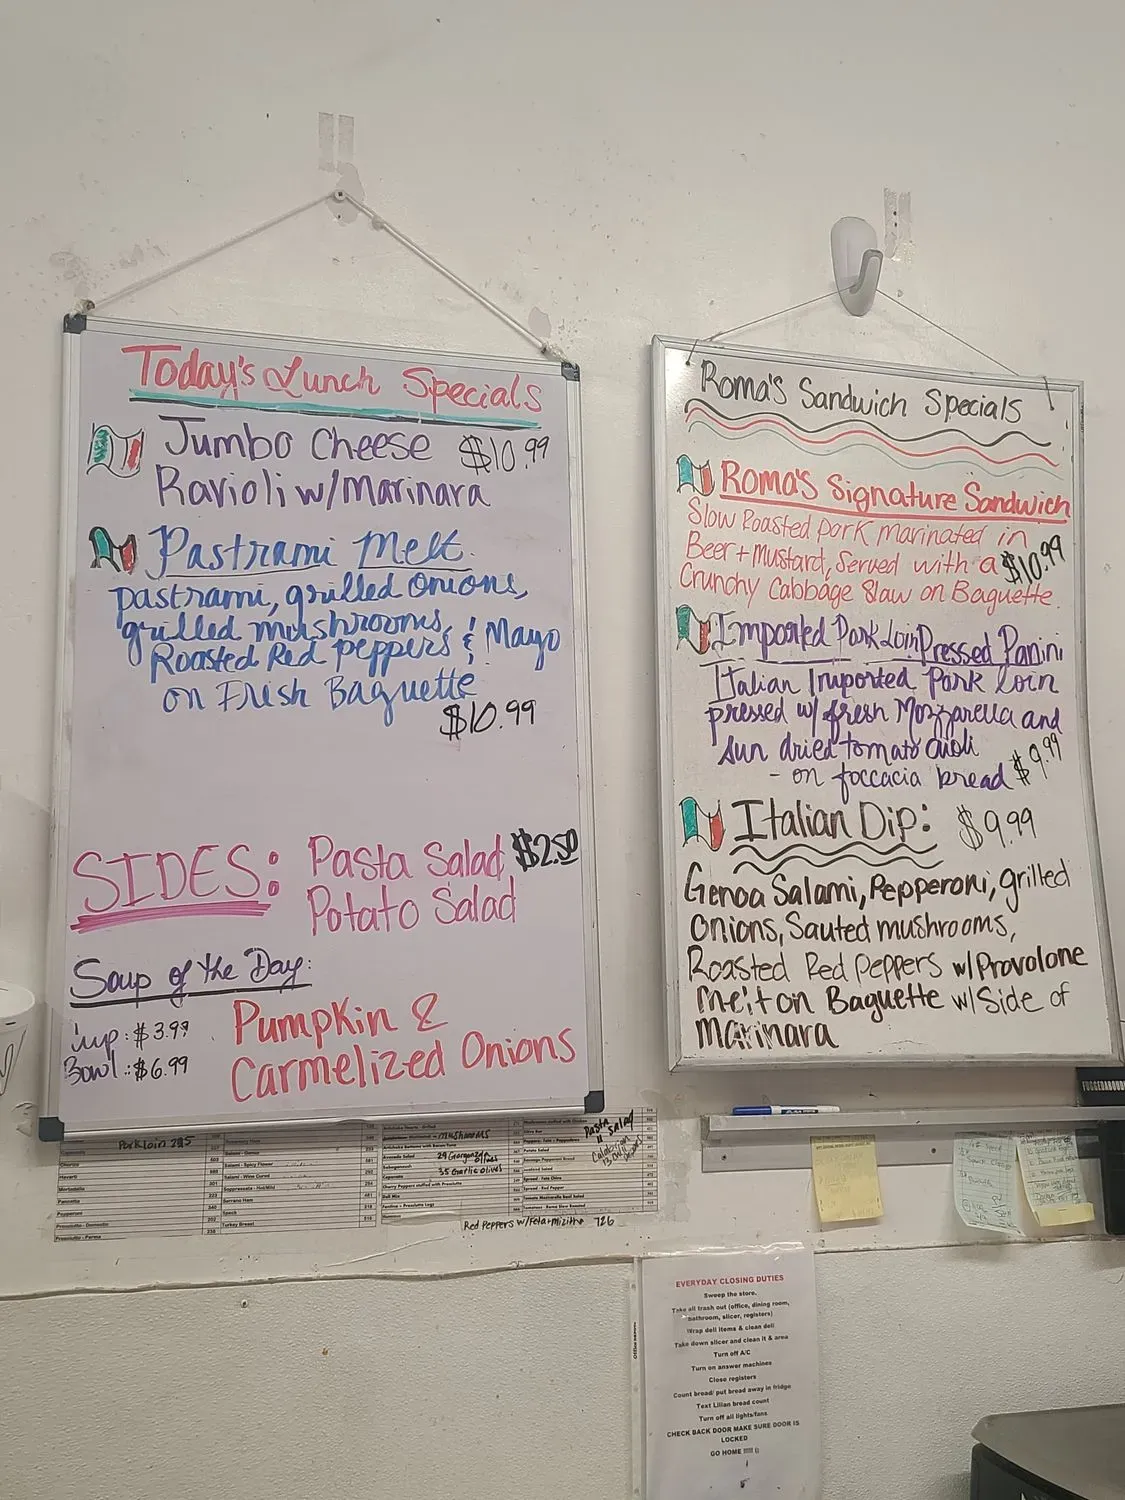 Today's Lunch Specials
Jumbo Cheese $10.99
Ravioli w/Marinara
Pastrami Melt
pastrami, grilled onions,
grilled mushrooms,
Roasted Red peppers & Mayo
on Fresh Baguette
$10.99
SIDES: Pasta Salad $2.50
Potato Salad
Soup of the Day:
Cup: $3.99
Bowl: $6.99
Pumpkin &
Carmelized Onions
Roma's Sandwich Specials
Roma's Signature Sandwich
Slow Roasted Pork Marinated in
Beer + Mustard, Served with a $10.99
Crunchy Cabbage Slaw on Baguette.
Imported Pork Loin Pressed Panini
Italian Imported Pork Loin
pressed w/ fresh Mozzarella and
sun dried tomato aioli
- on foccacia bread $9.99
Italian Dip: $9.99
Genoa Salami, Pepperoni, grilled
Onions, Sauted mushrooms,
Roasted Red Peppers w/Provolone
Melt on Baguette w/Side of
Marinara
Porkloin 295
Chorizo
Havarti
Mortadella
Pancetta
Pepperoni
Prosciutto - Domestic
Prosciutto - Parma
Salami - Genoa
Salami - Spicy Flower
Salami - Wine Cured
Soppressata - Hot/Mild
Serrano Ham
Speck
Turkey Breast
mushrooms
Avocado Salad
29 Gorgonzola olives
35 Garlic olives
Caponata
Cherry Peppers stuffed with Prosciutto
Deli Mix
Hummus
Pasta Salad
Potato Salad
Red Peppers w/Feta+Mizithra 726
FUGGEDABOUD
EVERYDAY CLOSING DUTIES
Sweep the store.
Take all trash out (office, dining room,
bathroom, slicer, registers)
Wrap deli items & clean deli
Take down slicer and clean it & area
Turn off A/C
Turn on answer machines
Close registers
Count bread/ put bread away in fridge
Text Lilian bread count
Turn off all lights/fans
CHECK BACK DOOR MAKE SURE DOOR IS
LOCKED
GO HOME !!!!! ()